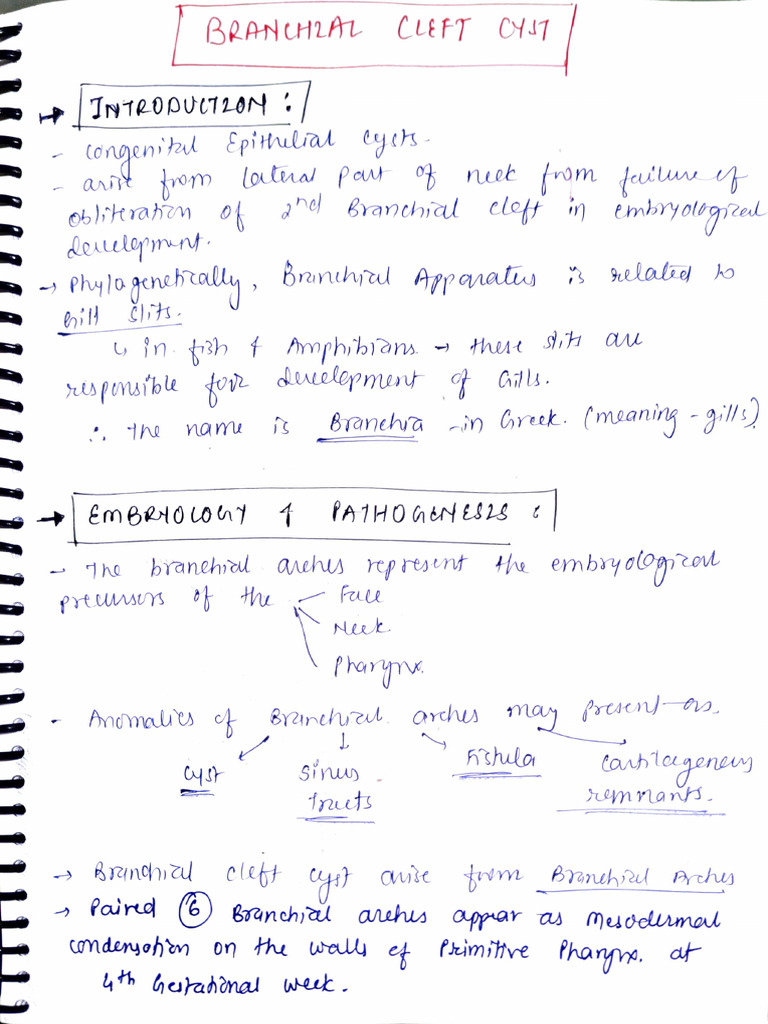 BRANCHIAL CLEFT CYST
→ INTRODUCTION :
- Congenital Epithelial Cysts.
- arise from lateral part of neck from failure of
obliteration of 2nd Branchial cleft in embryological
development.
→ Phylogenetically, Branchial Apparatus is related to
Gill Slits.
↳ in fish & Amphibians → these slits are
responsible for development of Gills.
∴ the name is Branchia - in Greek. (meaning - gills).
→ EMBRYOLOGY & PATHOGENESIS :
- The branchial arches represent the embryological
precursors of the - Face
- Neck.
Pharynx.
- Anomalies of Branchial arches may present as
Cyst Sinus Fistula Cartilageneus
tracts remnants.
→ Branchial cleft cyst arise from Branchial Arches
→ Paired 6 Branchial arches appear as Mesodermal
condensation on the walls of Primitive Pharynx. at
4th Gestational week.